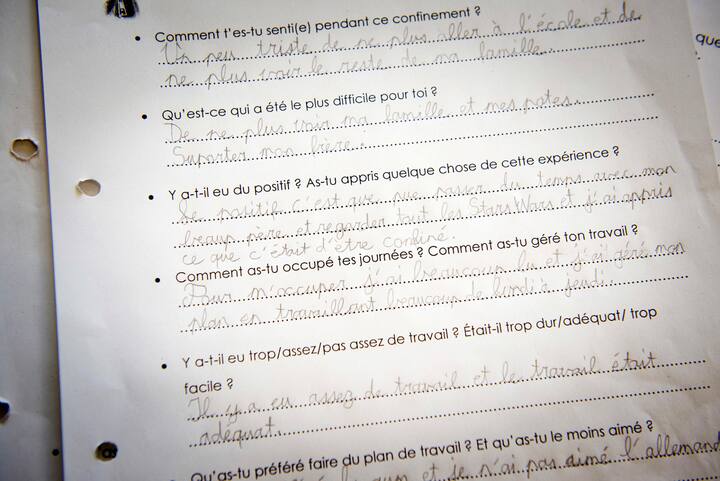 Comment t'es-tu senti(e) pendant ce confinement ?
Un peu triste de ne plus aller à l'école et de
ne plus voir le reste de ma famille.
Qu'est-ce qui a été le plus difficile pour toi ?
De ne plus voir ma famille et mes potes.
Suporter mon frère.
Y a-t-il eu du positif ? As-tu appris quelque chose de cette expérience ?
Le positif c'est que passer du temps avec mon
beaup père et regarder tout les Stars Wars et j'ai appris
ce que c'était d'être confiné.
Comment as-tu occupé tes journées ? Comment as-tu géré ton travail ?
Pour m'occuper j'ai beaucoup lu et j'ai géré mon
plan en travaillant beaucoup de lundi à jeudi.
Y a-t-il eu trop/assez/pas assez de travail ? Était-il trop dur/adéquat/ trop
facile ?
Il y a eu assez de travail et le travail était
adéquat.
Qu'as-tu préféré faire du plan de travail ? Et qu'as-tu le moins aimé ?
et je n'ai pas aimé l'allemand
que